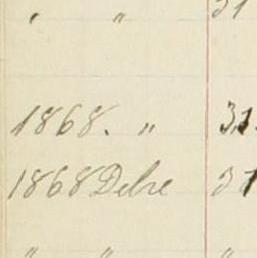 " " 31
1868. " 31.
1868 Debre 31
" " "